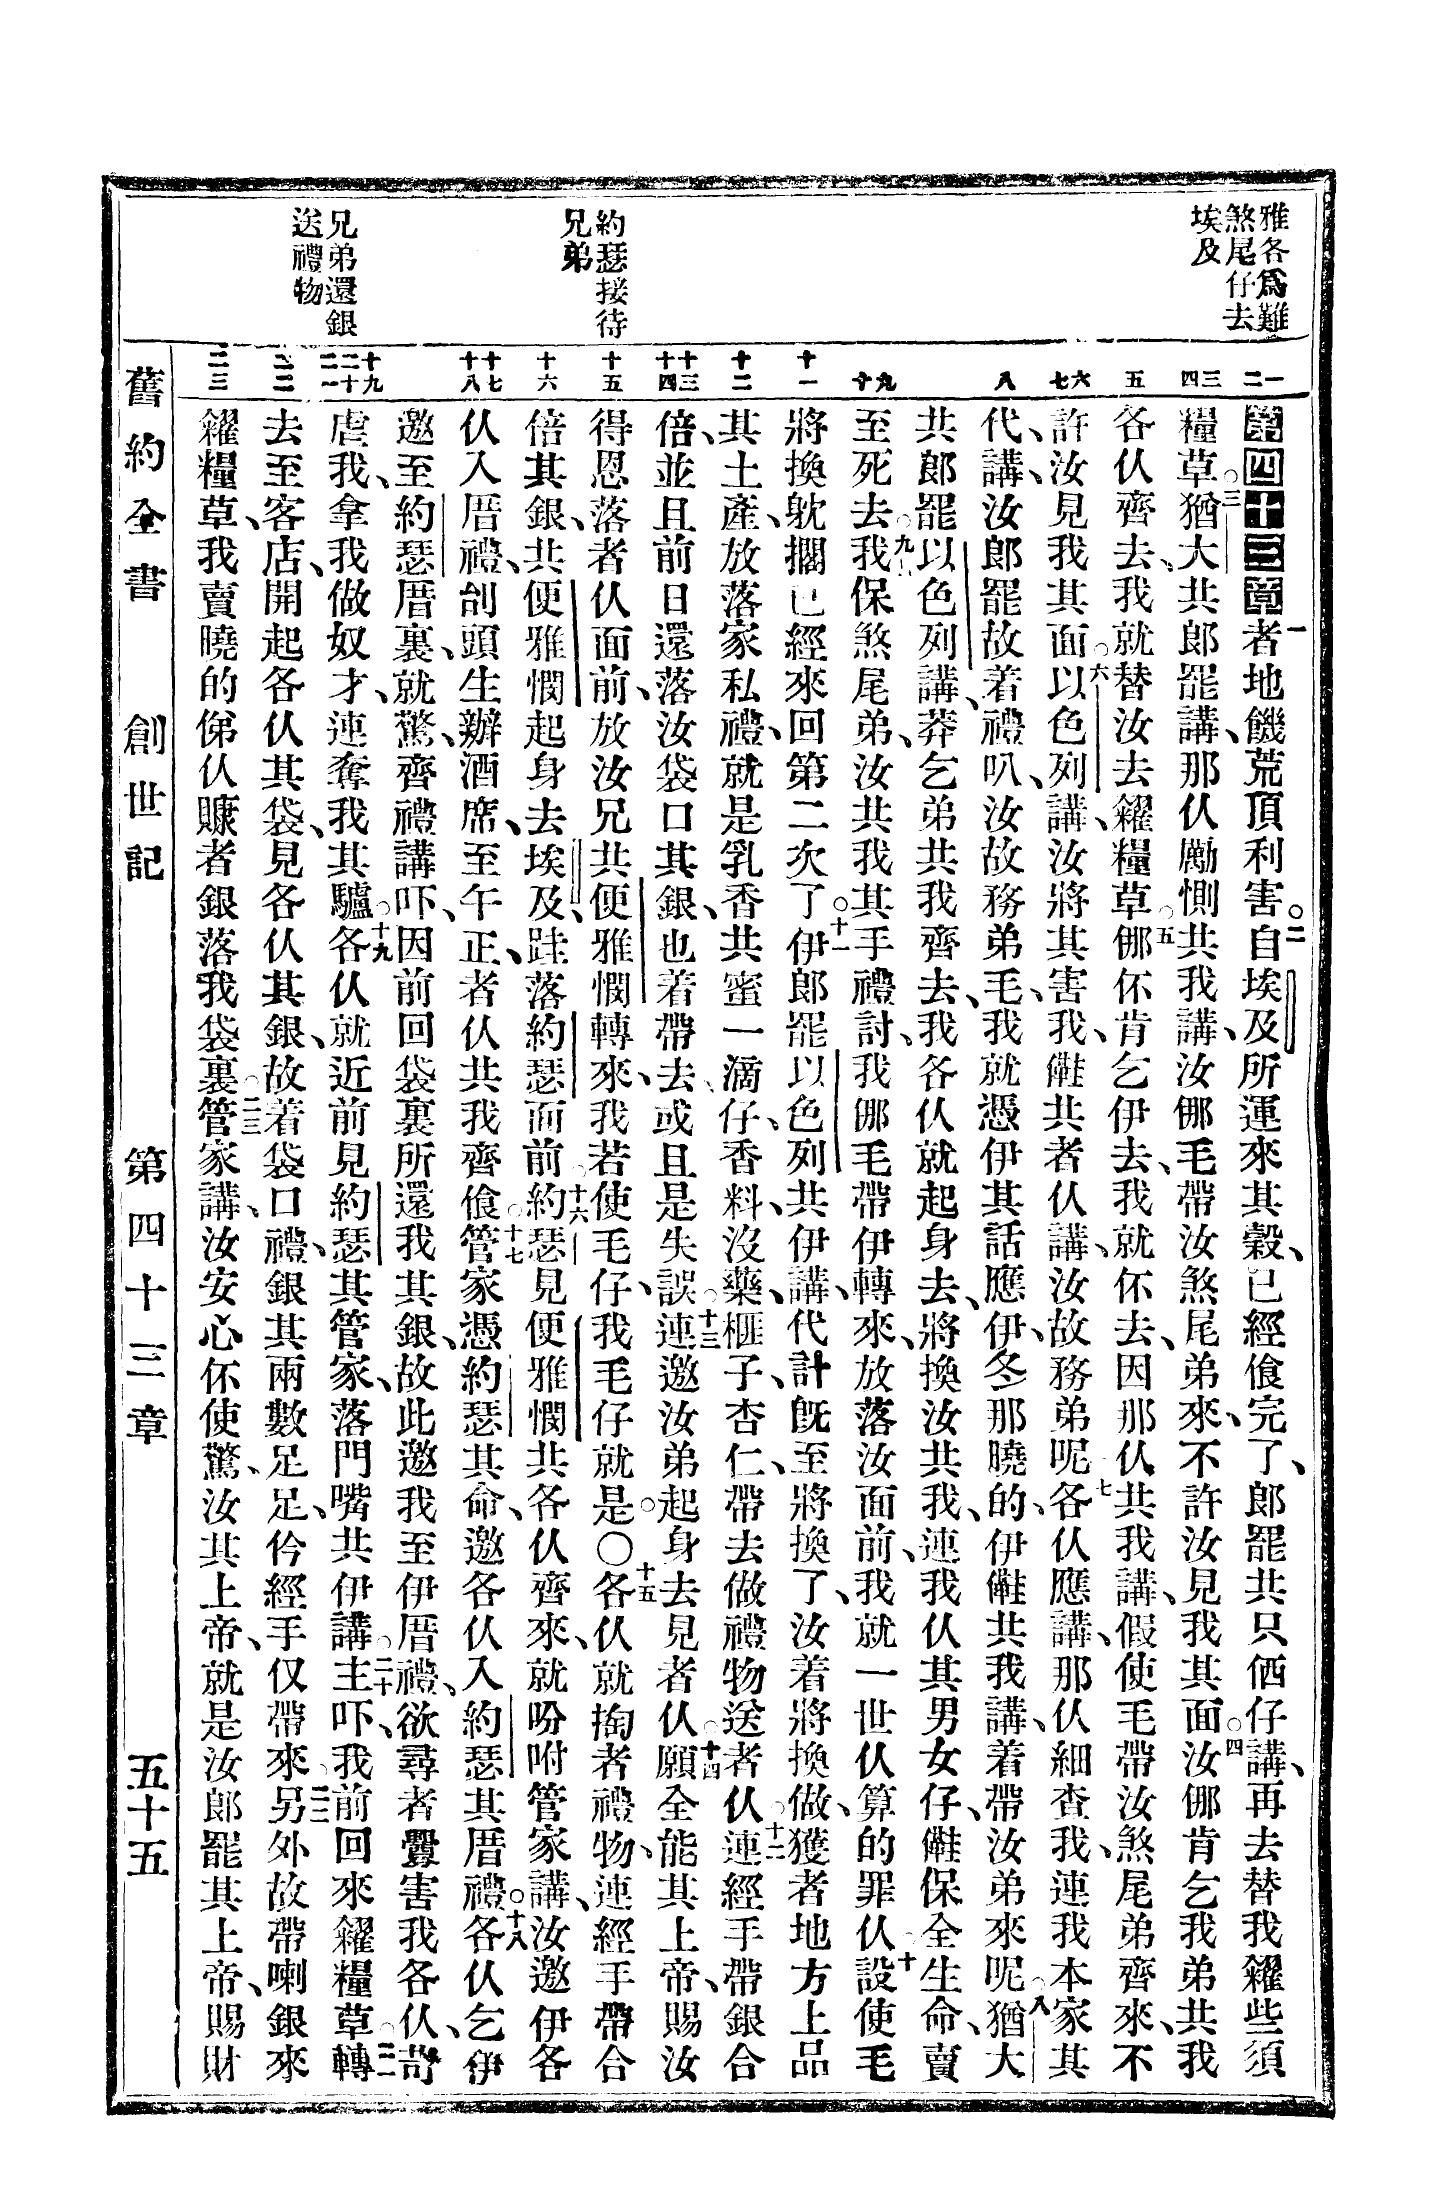 雅各爲難
煞尾仔去
埃及
約瑟接待
兄弟
兄弟還銀
送禮物
一 二
三 四
五
六 七
八
九 十
十一
十二
十三 十四
十五
十六
十七 十八
十九 二十 二一
二二
二三
第四十三章一者地饑荒頂利害。二自埃及所運來其穀、已經飡完了、郎罷共只伵仔講、再去替我糴些須
糧草。三猶大共郎罷講、那仈勵惻共我講、汝㑚毛帶汝煞尾弟來、不許汝見我其面。四汝㑚肯乞我弟共我
各仈齊去、我就替汝去糴糧草。五㑚伓肯乞伊去、我就伓去、因那仈共我講、假使毛帶汝煞尾弟齊來、不
許汝見我其面。六以色列講、汝將其害我、㒕共者仈講、汝故務弟呢。七各仈應講、那仈細查我、連我本家其
代、講、汝郎罷故着禮叭、汝故務弟毛、我就憑伊其話應伊、冬那曉的、伊㒕共我講、着帶汝弟來呢。八猶大
共郎罷以色列講、莽乞弟共我齊去、我各仈就起身去、將換汝共我、連我仈其男女仔、㒕保全生命、賣
至死去。九我保煞尾弟、汝共我其手禮討、我㑚毛帶伊轉來、放落汝面前、我就一世仈算的罪仈。十設使毛
將換躭擱、已經來回第二次了。十一伊郎罷以色列共伊講、代計旣至將換了、汝着將換做、獲者地方上品
其土產、放落家私禮、就是乳香共蜜一滴仔、香料、沒藥、榧子、杏仁、帶去做禮物送者仈。十二連經手帶銀合
倍、並且前日還落汝袋口其銀、也着帶去、或且是失誤。十三連邀汝弟起身去見者仈。十四願全能其上帝、賜汝
得恩落者仈面前、放汝兄共便雅憫轉來、我若使毛仔、我毛仔就是。〇十五各仈就掏者禮物、連經手帶合
倍其銀、共便雅憫起身去埃及、跬落約瑟面前。十六約瑟見便雅憫共各仈齊來、就吩咐管家講、汝邀伊各
仈入厝禮、刣頭生辦酒席、至午正、者仈共我齊飡。十七管家憑約瑟其命、邀各仈入約瑟其厝禮。十八各仈乞伊
邀至約瑟厝裏、就驚、齊禮講吓、因前回袋裏所還我其銀、故此邀我至伊厝禮、欲尋者釁害我各仈、苛
虐我、拿我做奴才、連奪我其驢。十九各仈就近前見約瑟其管家、落門嘴共伊講。二十主吓、我前回來糴糧草。二一轉
去至客店、開起各仈其袋、見各仈其銀、故着袋口禮、銀其兩數足足、仱經手仅帶來。二二另外故帶喇銀來
糴糧草、我賣曉的俤仈賺者銀落我袋裏。二三管家講、汝安心伓使驚、汝其上帝、就是汝郎罷其上帝、賜財
舊約全書 創世記 第四十三章 五十五